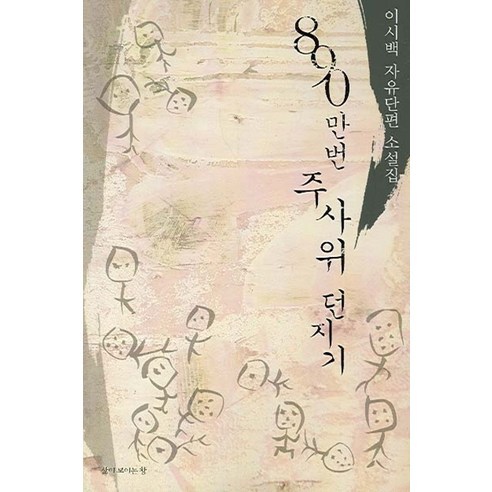 이시백 자유단편 소설집
890만번
주사위 던지기
삶이 보이는 창